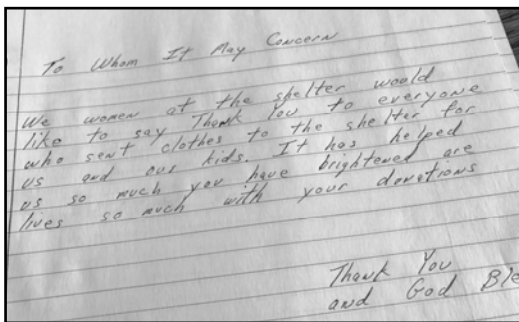 To Whom It May Concern
We women at the shelter would
like to say Thank You to everyone
who sent clothes to the shelter for
us and our kids. It has helped
us so much you have brightened are
lives so much with your donations
Thank You
and God Ble